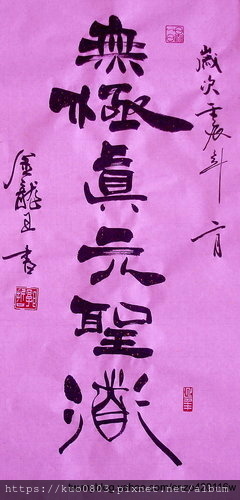 歲次壬辰年 二月
無極眞元聖道
金龍書
https://kuo0803.pixnet.net/album